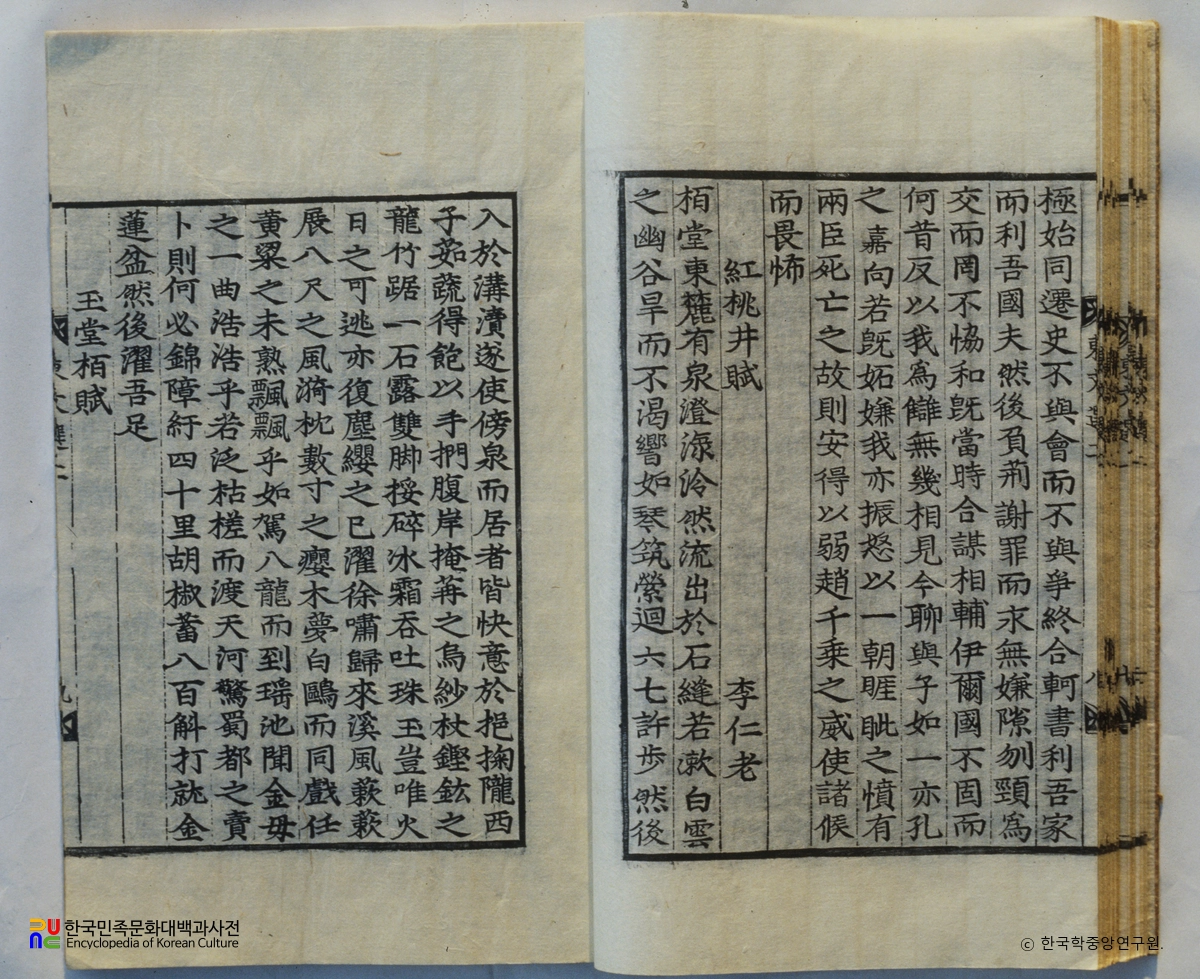 極始同遷史不與會而不與爭終合軻書利吾家
而利吾國夫然後負荊謝罪而求無嫌隙刎頸爲
交而罔不恊和旣當時合謀相輔伊爾國不固而
何昔反以我爲讎無幾相見今聊與子如一亦孔
之嘉向若旣妬嫌我亦振怒以一朝睚眦之憤有
兩臣死亡之故則安得以弱趙千乘之威使諸候
而畏怖
紅桃井賦 李仁老
栢堂東麓有泉澄渌泠然流出於石縫若漱白雲
之幽谷旱而不渴響如琴筑縈迴六七許步然後
入於溝瀆遂使傍泉而居者皆快意於挹掬隴西
子茹蔬得飽以手捫腹岸掩苒之烏紗杖鏗鉉之
龍竹踞一石露雙脚挼碎氷霜吞吐珠玉豈唯火
日之可逃亦復塵纓之已濯徐嘯歸來溪風蔌蔌
展八尺之風漪枕數寸之癭木夢白鷗而同戲任
黃粱之未熟飄飄乎如駕八龍而到瑤池聞金母
之一曲浩浩乎若泛枯槎而渡天河驚蜀都之賣
卜則何必錦障紆四十里胡椒蓄八百斛打就金
蓮盆然後濯吾足
玉堂栢賦
東文選二
八
한국민족문화대백과사전
Encyclopedia of Korean Culture
© 한국학중앙연구원.